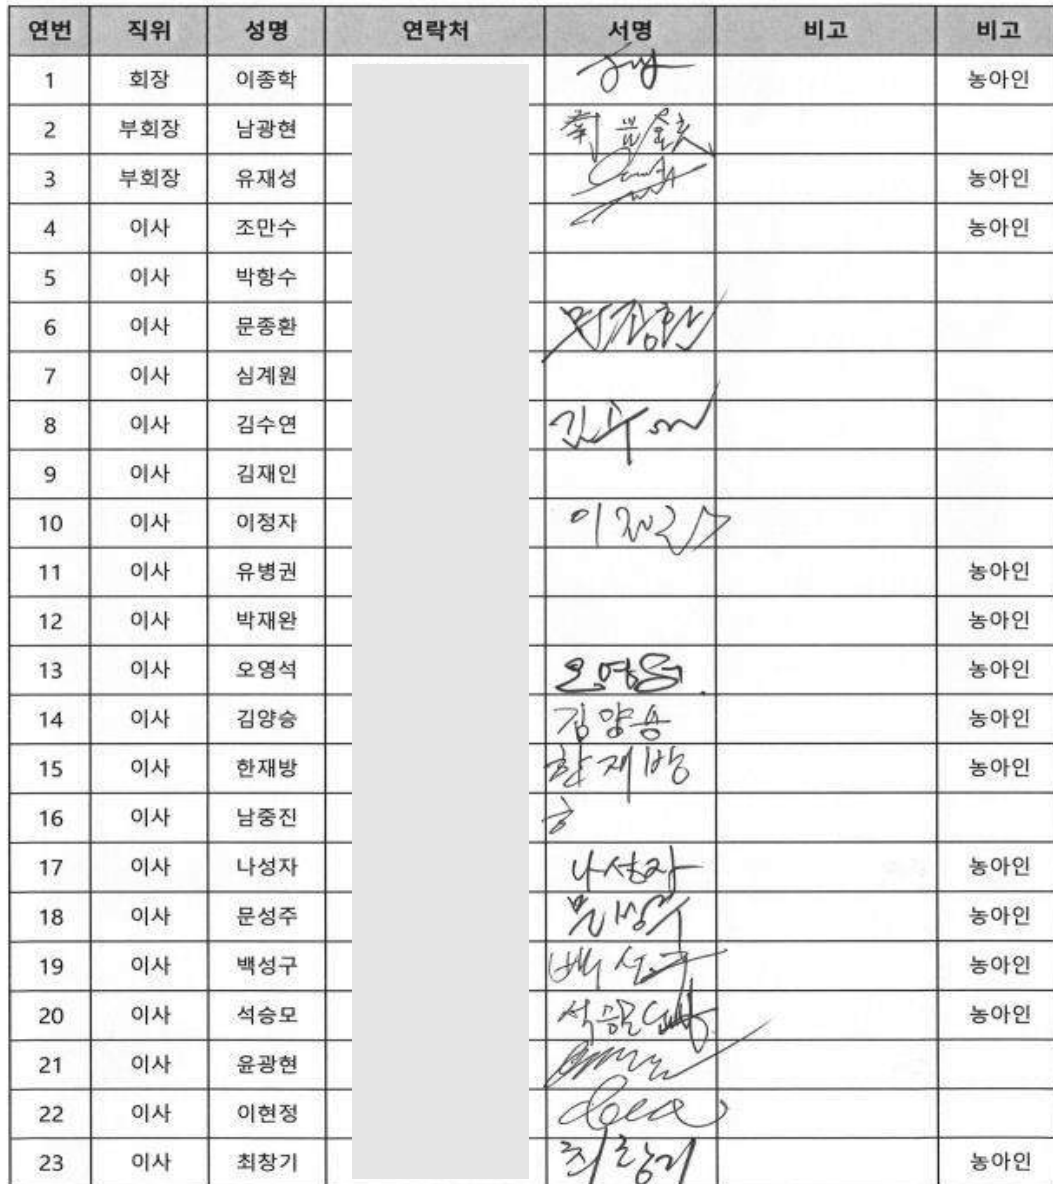 연번 직위 성명 연락처 서명 비고 비고
1 회장 이종학 농아인
2 부회장 남광현
3 부회장 유재성 농아인
4 이사 조만수 농아인
5 이사 박항수
6 이사 문종환
7 이사 심계원
8 이사 김수연 김수연
9 이사 김재인
10 이사 이정자
11 이사 유병권 농아인
12 이사 박재완 농아인
13 이사 오영석 오영석 농아인
14 이사 김양승 김양승 농아인
15 이사 한재방 한재방 농아인
16 이사 남중진
17 이사 나성자 나성자 농아인
18 이사 문성주 농아인
19 이사 백성구 백성구 농아인
20 이사 석승모 농아인
21 이사 윤광현
22 이사 이현정
23 이사 최창기 최창기 농아인